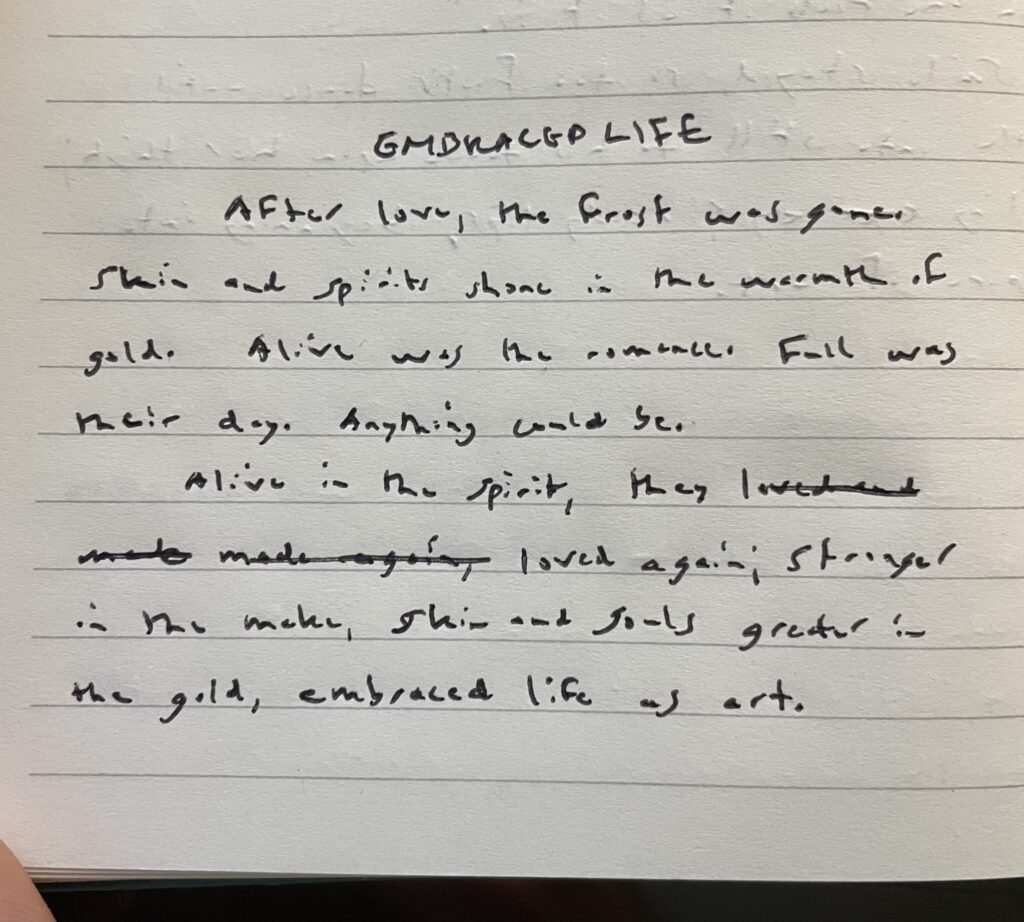 EMBRACED LIFE
After love, the frost was gone.
Skin and spirits shone in the warmth of
gold. Alive was the romance. Fall was
their day. Anything could be.
Alive in the spirit, they loved and
make made again, loved again; stronger
in the make, skin and souls greater in
the gold, embraced life as art.